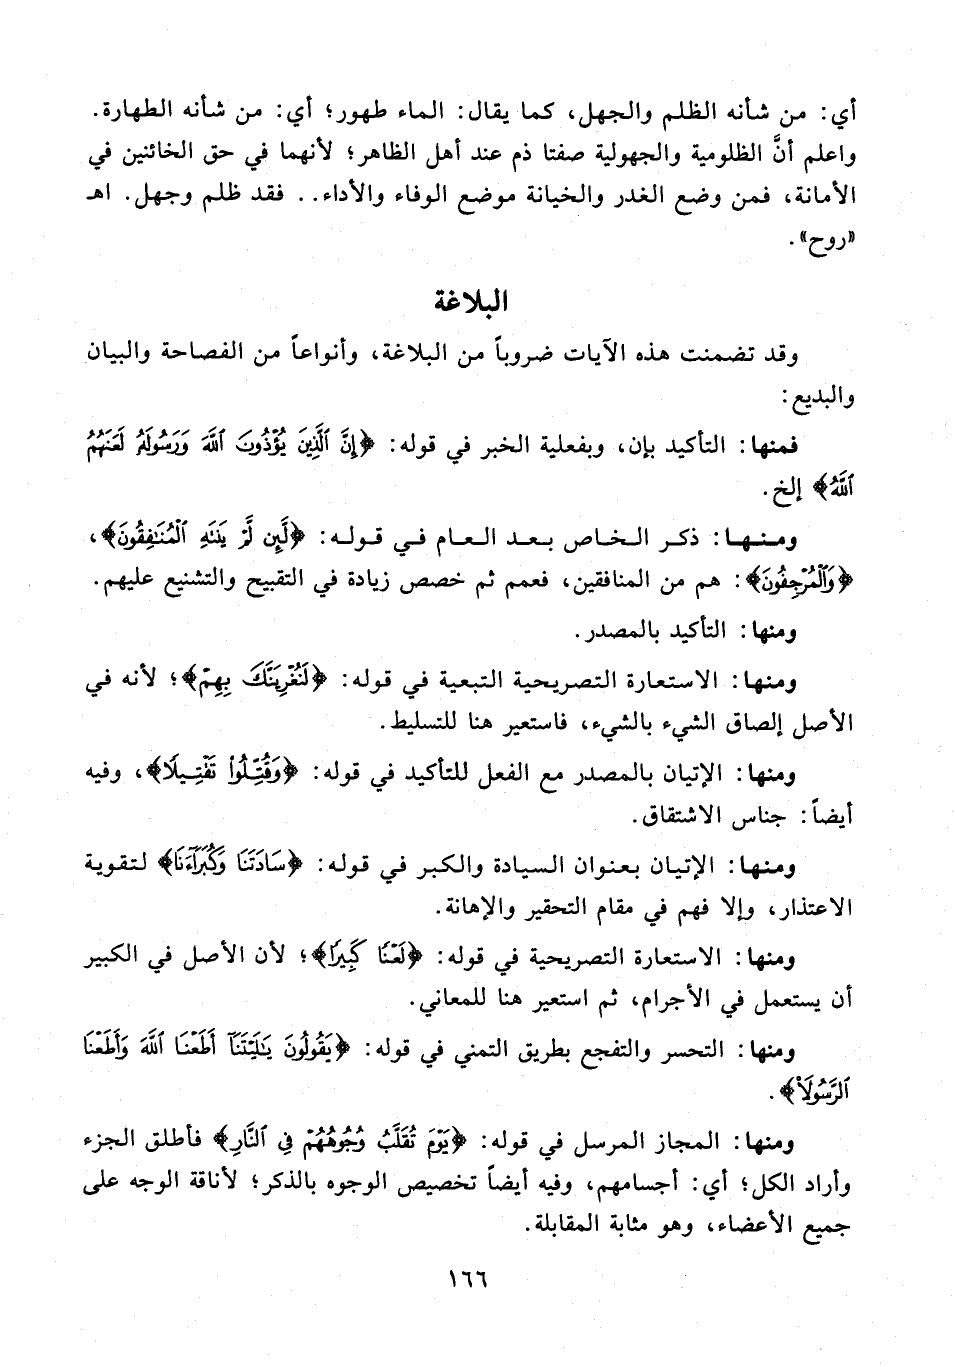 أي: من شأنه الظلم والجهل، كما يقال: الماء طهور؛ أي: من شأنه الطهارة.
واعلم أنَّ الظلومية والجهولية صفتا ذم عند أهل الظاهر؛ لأنهما في حق الخائنين في
الأمانة، فمن وضع الغدر والخيانة موضع الوفاء والأداء.. فقد ظلم وجهل. اهـ
«روح».
البلاغة
وقد تضمنت هذه الآيات ضروباً من البلاغة، وأنواعاً من الفصاحة والبيان
والبديع:
فمنها: التأكيد بإن، وبفعلية الخبر في قوله: ﴿إِنَّ ٱلَّذِينَ يُؤْذُونَ ٱللَّهَ وَرَسُولَهُۥ لَعَنَهُمُ
ٱللَّهُ﴾ إلخ.
ومنها: ذكر الخاص بعد العام في قوله: ﴿لَّئِن لَّمْ يَنتَهِ ٱلْمُنَٰفِقُونَ﴾،
﴿وَٱلْمُرْجِفُونَ﴾: هم من المنافقين، فعمم ثم خصص زيادة في التقبيح والتشنيع عليهم.
ومنها: التأكيد بالمصدر.
ومنها: الاستعارة التصريحية التبعية في قوله: ﴿لَنُغْرِيَنَّكَ بِهِمْ﴾؛ لأنه في
الأصل إلصاق الشيء بالشيء، فاستعير هنا للتسليط.
ومنها: الإتيان بالمصدر مع الفعل للتأكيد في قوله: ﴿وَقُتِّلُوا۟ تَقْتِيلًا﴾، وفيه
أيضاً: جناس الاشتقاق.
ومنها: الإتيان بعنوان السيادة والكبر في قوله: ﴿سَادَتَنَا وَكُبَرَآءَنَا﴾ لتقوية
الاعتذار، وإلا فهم في مقام التحقير والإهانة.
ومنها: الاستعارة التصريحية في قوله: ﴿لَعْنًا كَبِيرًا﴾؛ لأن الأصل في الكبير
أن يستعمل في الأجرام، ثم استعير هنا للمعاني.
ومنها: التحسر والتفجع بطريق التمني في قوله: ﴿يَقُولُونَ يَٰلَيْتَنَآ أَطَعْنَا ٱللَّهَ وَأَطَعْنَا
ٱلرَّسُولَا۠﴾.
ومنها: المجاز المرسل في قوله: ﴿يَوْمَ تُقَلَّبُ وُجُوهُهُمْ فِي ٱلنَّارِ﴾ فأطلق الجزء
وأراد الكل؛ أي: أجسامهم، وفيه أيضاً تخصيص الوجوه بالذكر؛ لأناقة الوجه على
جميع الأعضاء، وهو مثابة المقابلة.
١٦٦